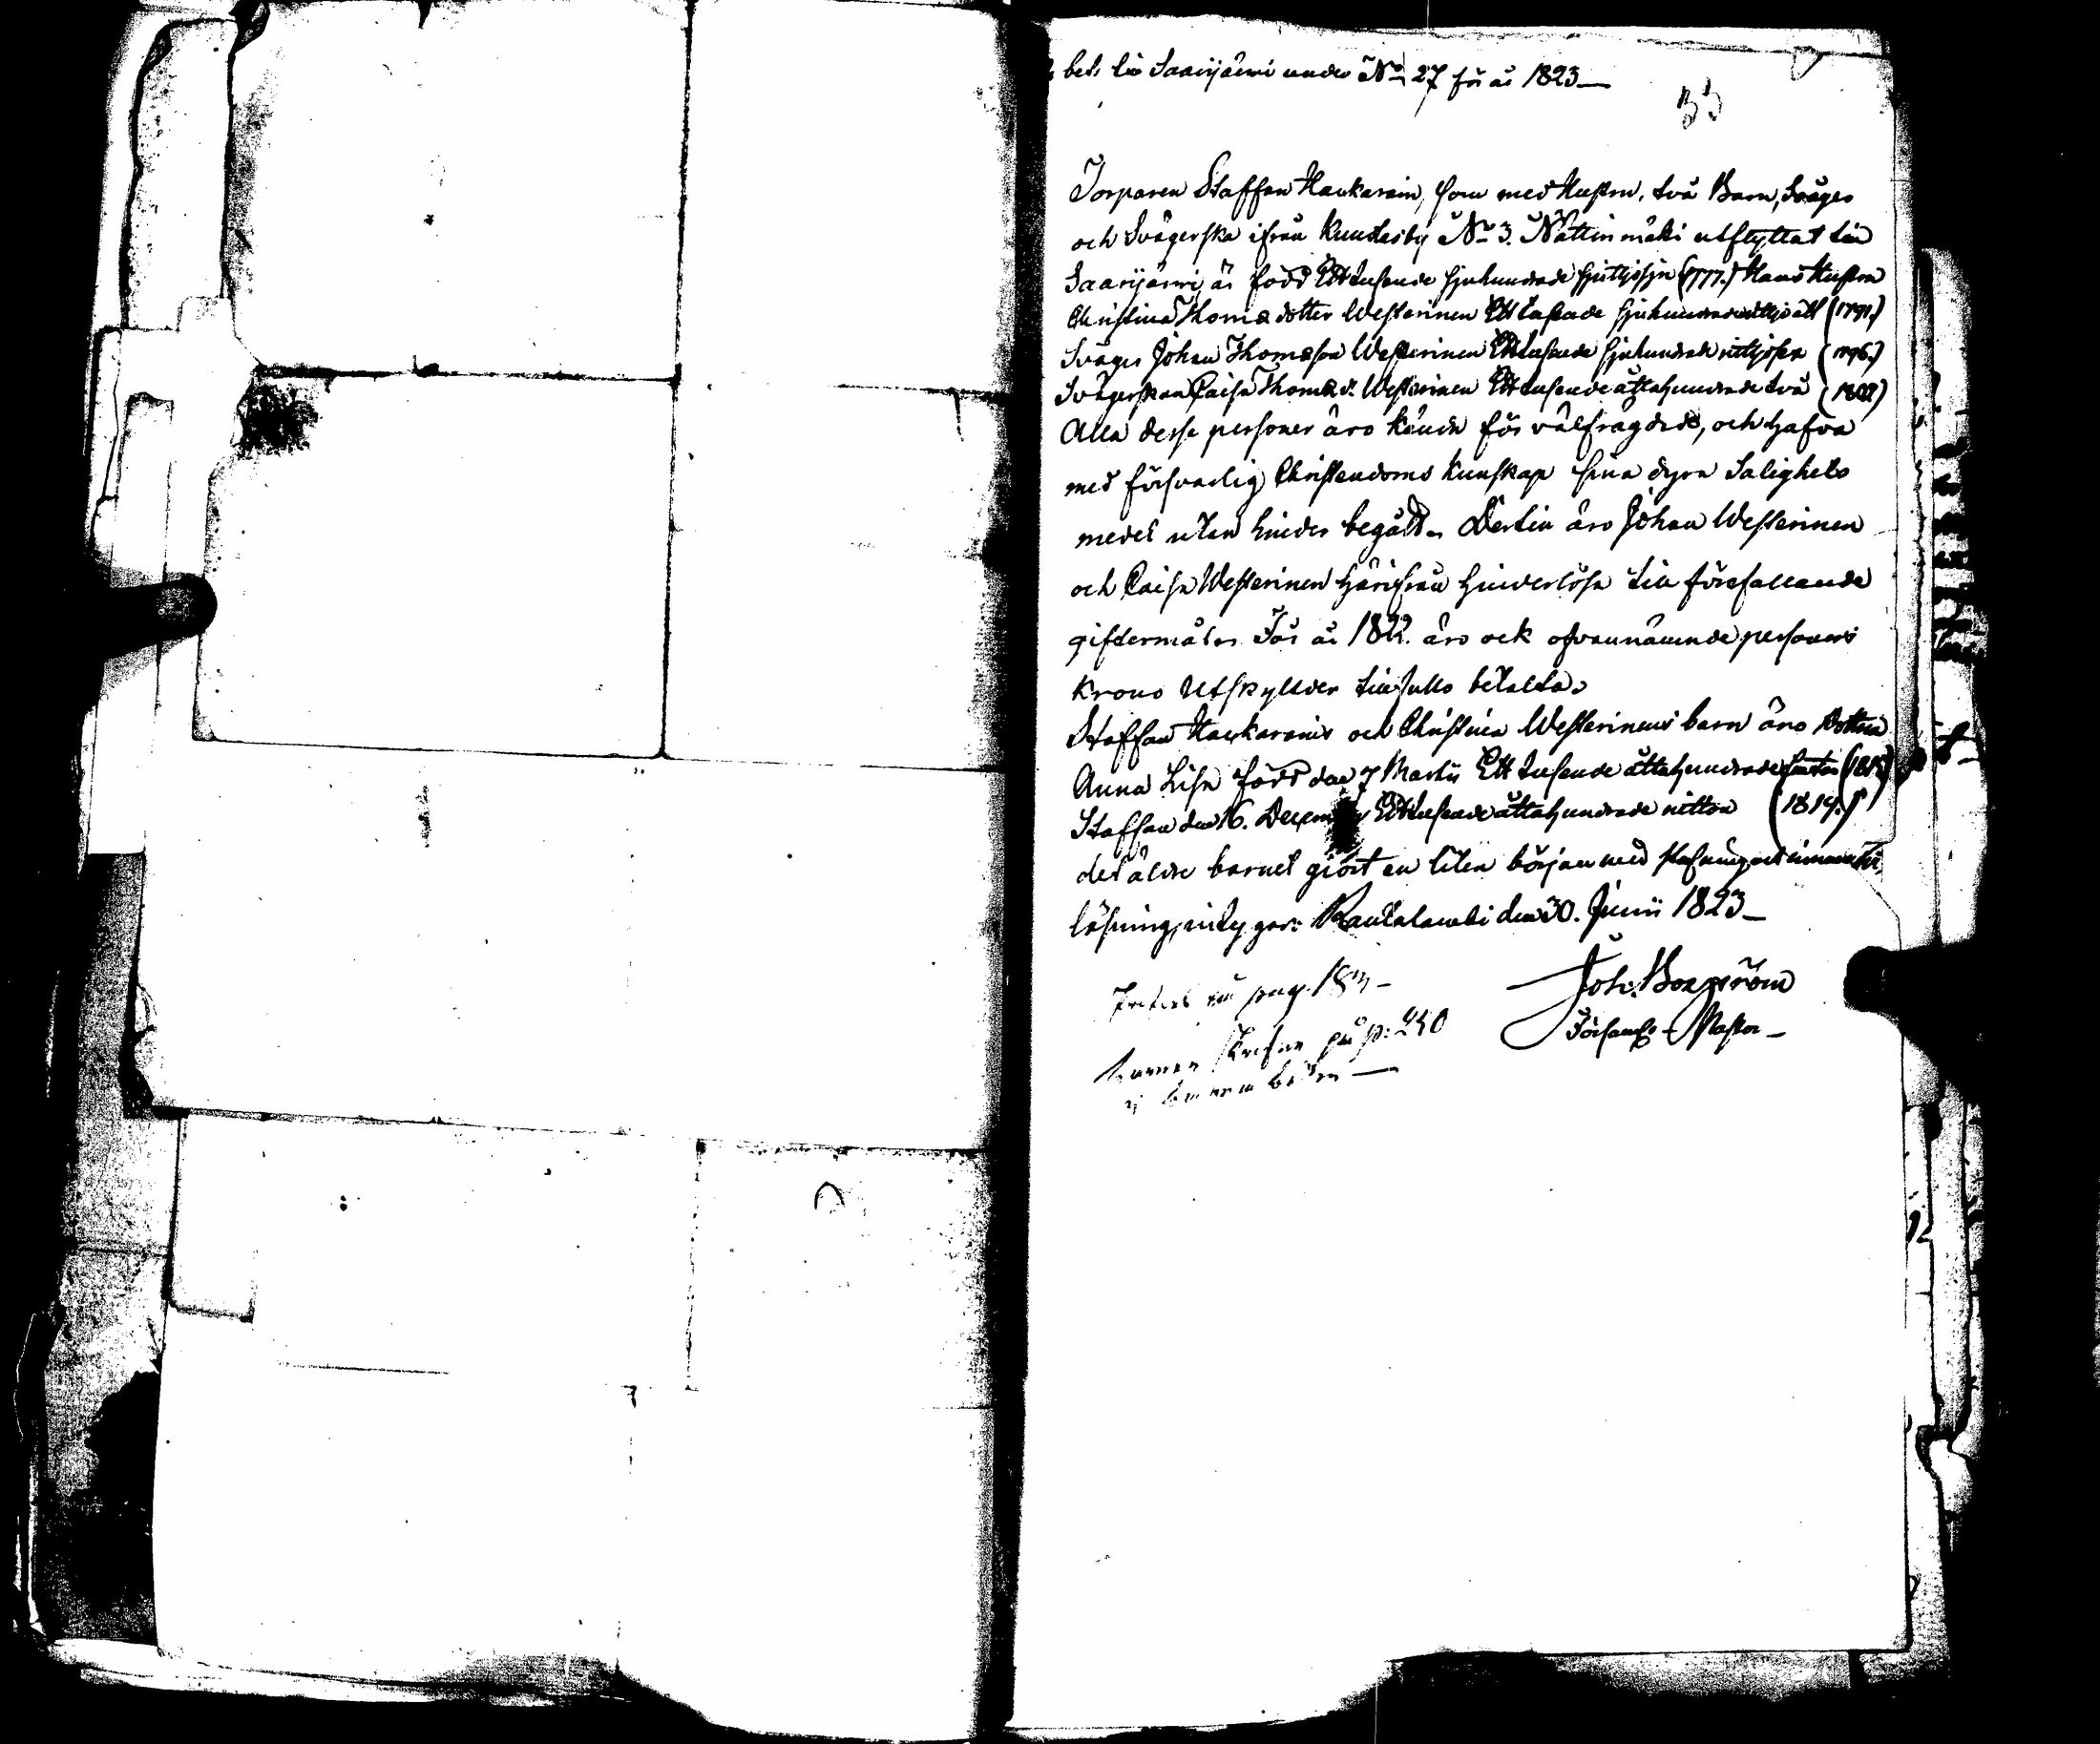 bet. till Saarijärvi under No 27 för år 1823
33
Torparen Staffan Haukarain, som med Hustru, två Barn, Svåger
och Svägerska ifrån Kuukasby No 3. Nättinmäki utflyttat till
Saarijärvi, är född Ett tusende sjuhundrade sjuttijosju (1777.) Hans Hustru
Christina Thomædotter Westerinen Ett tusende sjuhundrade nittijo ått (1791.)
Svåger Johan Thomæson Westerinen Ett tusende sjuhundrade nittijosex (1796.)
Svägerskan Caisa Thomæ dr Westerinen Ett tusende åttahundrade två (1802)
Alla desse personer äro kände för välfrägdade, och hafva
med försvarlig Christendoms kunskap sina dyra Salighets
medel utan hinder begådt. Dertill äro Johan Westerinen
och Caisa Westerinen härifrån hinderlösa till förefallande
giftermåler. För år 1822. äro ock ofvannämnde personers
Krono Utskylder till fullo betalta.
Staffan Haukarains och Christina Westerinens barn äro Dottren
Anna Lisa född den 7 Martii Ett tusende åttahundrade (181
Staffan den 16. Decemb Ett tusende åttahundrade nitton (1819.)
det äldre barnet giort en liten början med stafning och innan
läsning, intygar. Rautalambi den 30. Junii 1823
på pag. 18
Joh. Borgström
på p: 240
Församl. Pastor